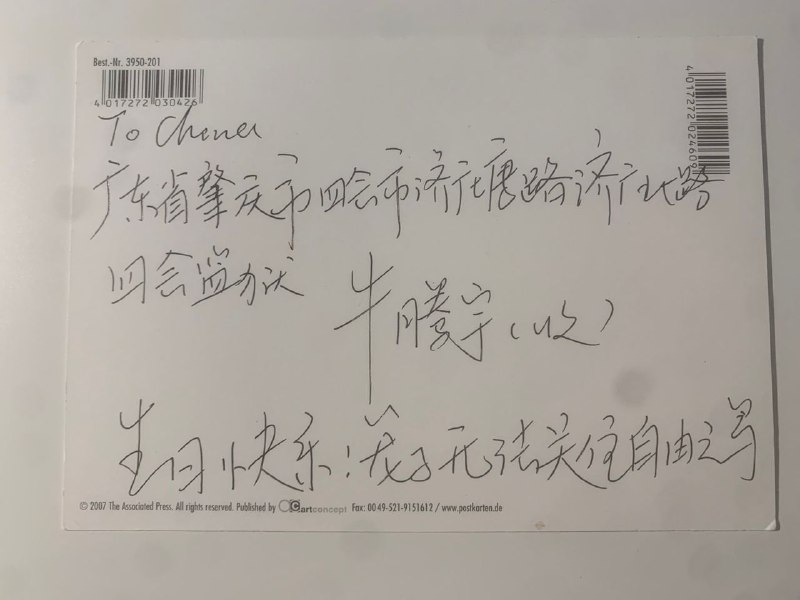 Best.-Nr. 3950-201
4 017272 030426
4 017272 024609
To China
广东省肇庆市四会市济广塘路济广北路
四会监狱 牛腾宇（收）
生日快乐！笼子无法关住自由之鸟
© 2007 The Associated Press. All rights reserved. Published by artconcept Fax: 00 49-521-9151612 / www.postkarten.de